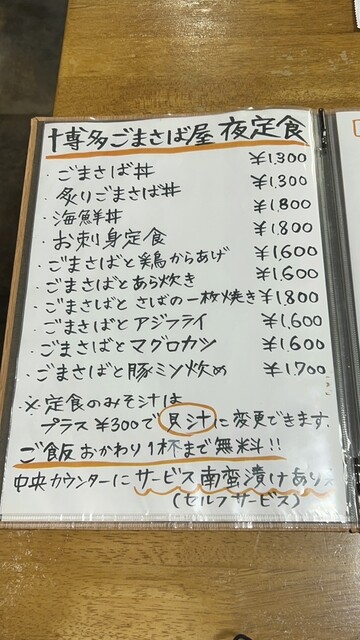 博多ごまさば屋 夜定食
・ごまさば丼 ¥1,300
・炙りごまさば丼 ¥1,300
・海鮮丼 ¥1,800
・お刺身定食 ¥1,800
・ごまさばと鶏からあげ ¥1,600
・ごまさばとあら炊き ¥1,600
・ごまさばと さばの一枚焼き ¥1,800
・ごまさばと アジフライ ¥1,600
・ごまさばと マグロカツ ¥1,600
・ごまさばと 豚ミン炒め ¥1,700
※定食のみそ汁は
プラス ¥300で 貝汁に変更できます。
ご飯おかわり1杯まで無料!!
中央カウンターに サービス南蛮漬けあり
(セルフサービス)